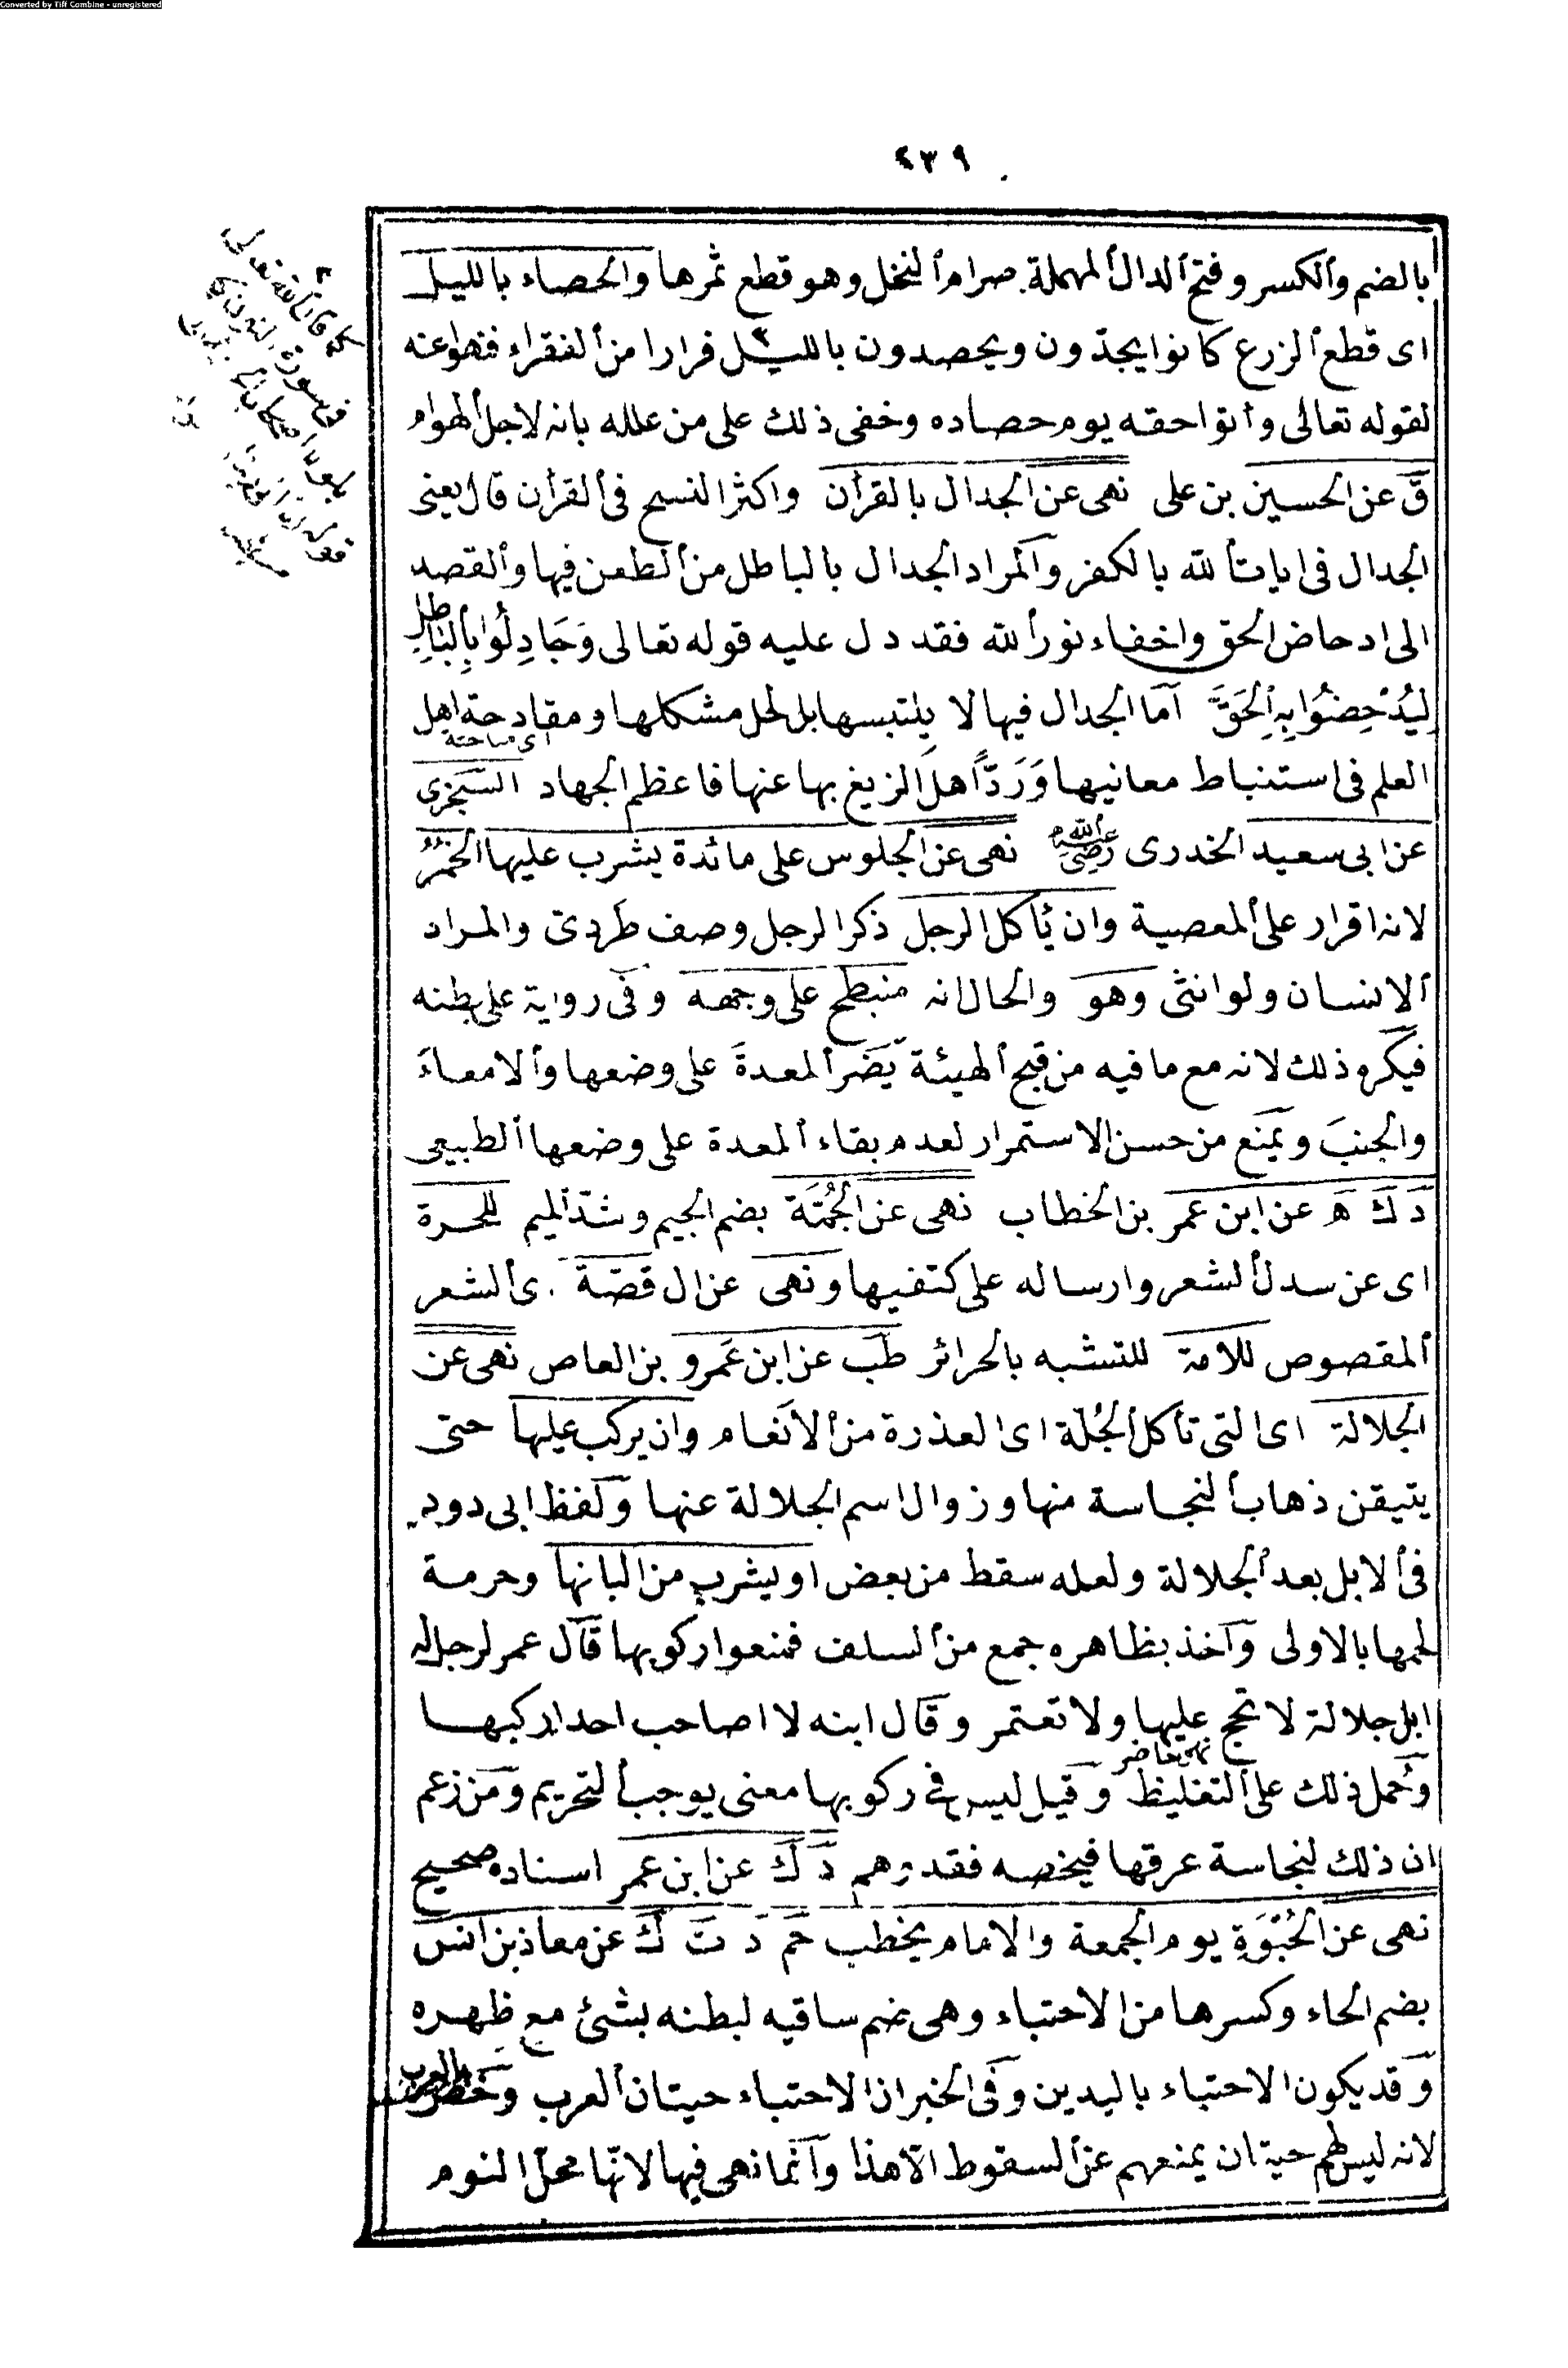 Converted by Tiff Combine - unregistered
٤٣٩
بالضم والكسر وفتح الدال المهملة صرام النخل وهو قطع ثمرها والحصاء بالليل
اى قطع الزرع كانوا يجدّون ويحصدون بالليل فرارا من الفقراء فنهوا عنه
لقوله تعالى وأتوا حقه يوم حصاده وخفى ذلك على من علله بانه لاجل الهوام
ق عن الحسين بن على نهى عن الجدال بالقرأن واكثر النسخ فى القرأن قال يعنى
الجدال فى ايات الله بالكفر والمراد الجدال بالباطل من الطعن فيها والقصد
الى ادحاض الحق واخفاء نور الله فقد دل عليه قوله تعالى وَجَادِلُوا بِالْبَاطِلِ
لِيُدْحِضُوا بِهِ الْحَقَّ اما الجدال فيها لا يلتبسها بل لحل مشكلها ومقادحة اهل
اى مباحثة
العلم فى استنباط معانيها وَرَدّاً هل الزيغ بها عنها فاعظم الجهاد السّجزى
عن ابى سعيد الخدرى رضى الله عنه نهى عن الجلوس على مائدة يشرب عليها الخمر
لانه اقرار على المعصية وان يأكل الرجل ذكر الرجل وصف طردىّ والمراد
الانسان ولو انثى وهو والحال انه منبطح على وجهه وفى رواية على بطنه
فيكره ذلك لانه مع ما فيه من قبح الهيئة يضر المعدةَ على وضعها والامعاءَ
والجنبَ ويمنع من حسن الاستمرار لعدم بقاء المعدة على وضعها الطبيعى
د ك ه عن ابن عمر بن الخطاب نهى عن الجُمّة بضم الجيم وشدّ الميم للحرة
اى عن سدل الشعر وارساله على كتفيها ونهى عن ال قصّة .ى الشعر
المقصوص للامة للتشبه بالحرائر طب عن ابن عَمرو بن العاص نهى عن
الجلالة اى التى تأكل الجُلّة اى العذرة من الانعام وان يركب عليها حتى
يتيقن ذهاب النجاسة منها وزوال اسم الجلالة عنها ولفظ ابى دود
فى الابل بعد الجلالة ولعله سقط من بعض او يشرب من البانها وحرمة
لحمها بالاولى واخذ بظاهره جمع من السلف فمنعوا ركوبها قال عمر لرجل له
ابل جلالة لا تحج عليها ولا تعتمر وقال ابنه لا اصاحب احدا ركبها
نهى حاضر
وحمل ذلك على التغليظ وقيل ليس فى ركوبها معنى يوجب التحريم ومن زعم
ان ذلك لنجاسة عرقها فيخصه فقد وهم د ك عن ابن عمر اسناده صحيح
نهى عن الحُبْوَةِ يوم الجمعة والامام يخطب حم د ت ك عن معاذ بن انس
بضم الحاء وكسرها من الاحتباء وهى ضم ساقيه لبطنه بشئ مع ظهره
وقد يكون الاحتباء باليدين وفى الخبر ان الاحتباء حيتان العرب وخص
لانه ليس لهم حيتان يمنعهم عن السقوط الّا هذا وانّما نهى فيها لانّها محلّ النوم
كما قال الله تعالى